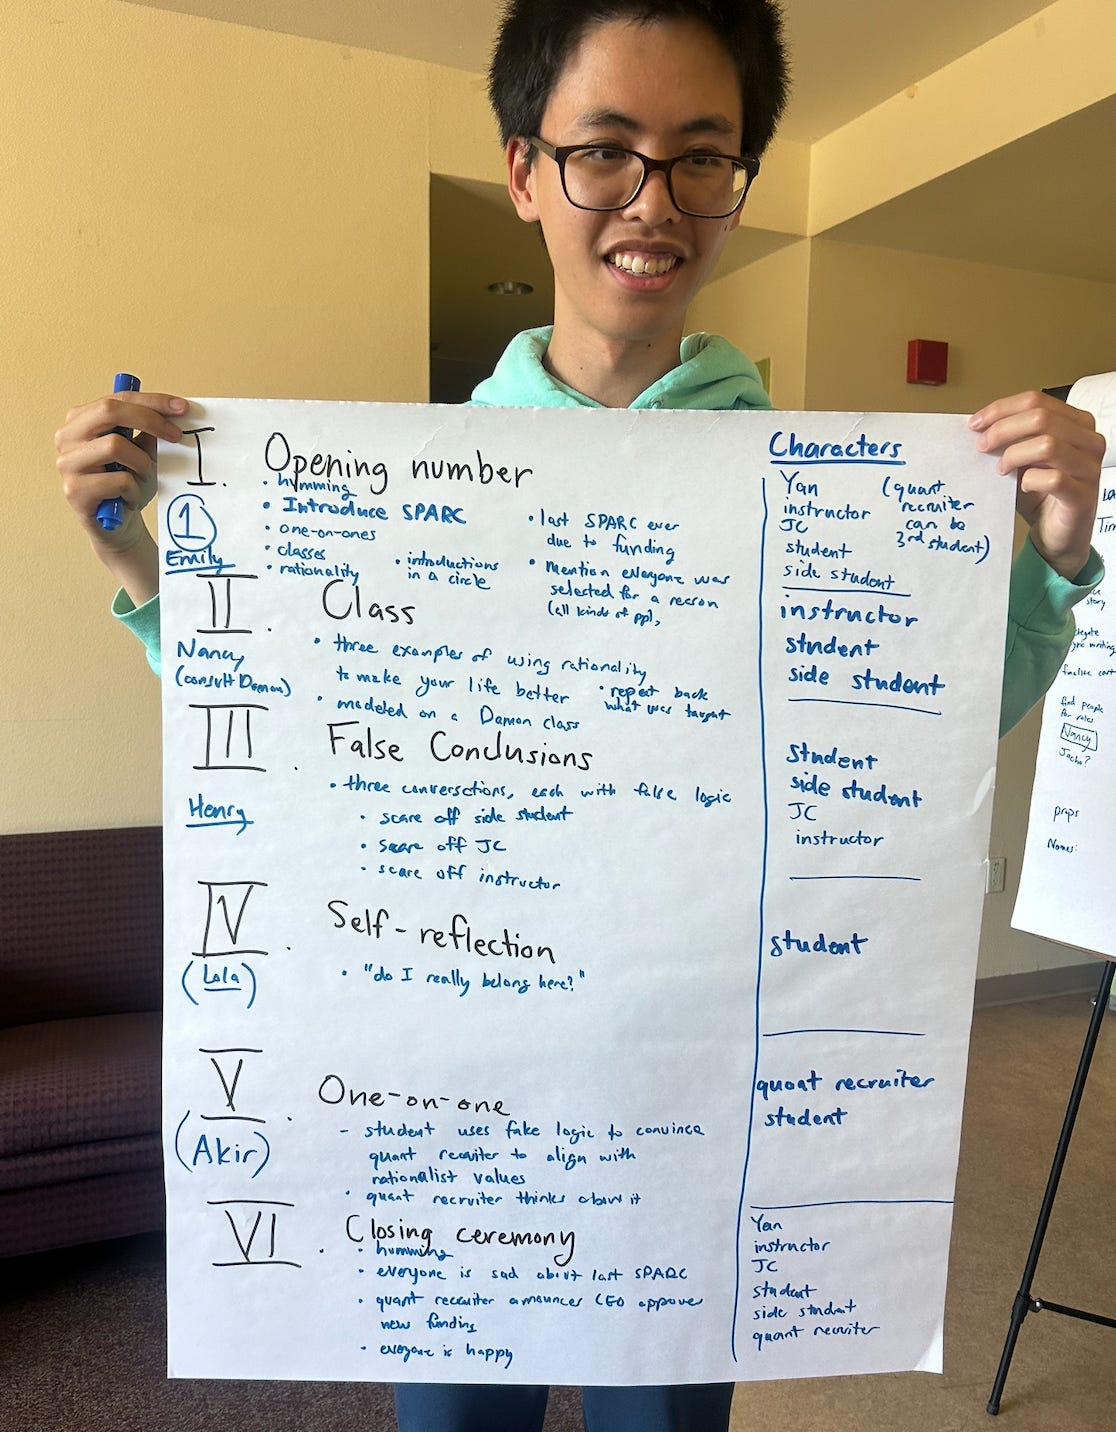 I.
Opening number
• humming
1
• Introduce SPARC
Emily
• one-on-ones
• classes
• rationality
• introductions
in a circle
• last SPARC ever
due to funding
• Mention everyone was
selected for a reason
(all kinds of ppl,
Characters
Yan
instructor
JC
student
side student
(quant
recruiter
can be
3rd student)
II.
Class
Nancy
(consult Damon)
• three examples of using rationality
to make your life better
• repeat back
what was taught
• modeled on a Damon class
instructor
student
side student
III.
False Conclusions
Henry
• three conversations, each with false logic
• scare off side student
• scare off JC
• scare off instructor
student
side student
JC
instructor
IV.
Self-reflection
(Lola)
• "do I really belong here?"
student
V.
One-on-one
(Akir)
- student uses fake logic to convince
quant recruiter to align with
rationalist values
• quant recruiter thinks about it
quant recruiter
student
VI.
Closing ceremony
• humming
• everyone is sad about last SPARC
• quant recruiter announces CEO approves
new funding
• everyone is happy
Yan
instructor
JC
student
side student
quant recruiter
Tim
story
writing
finalize
find people
for roles
Nancy
props